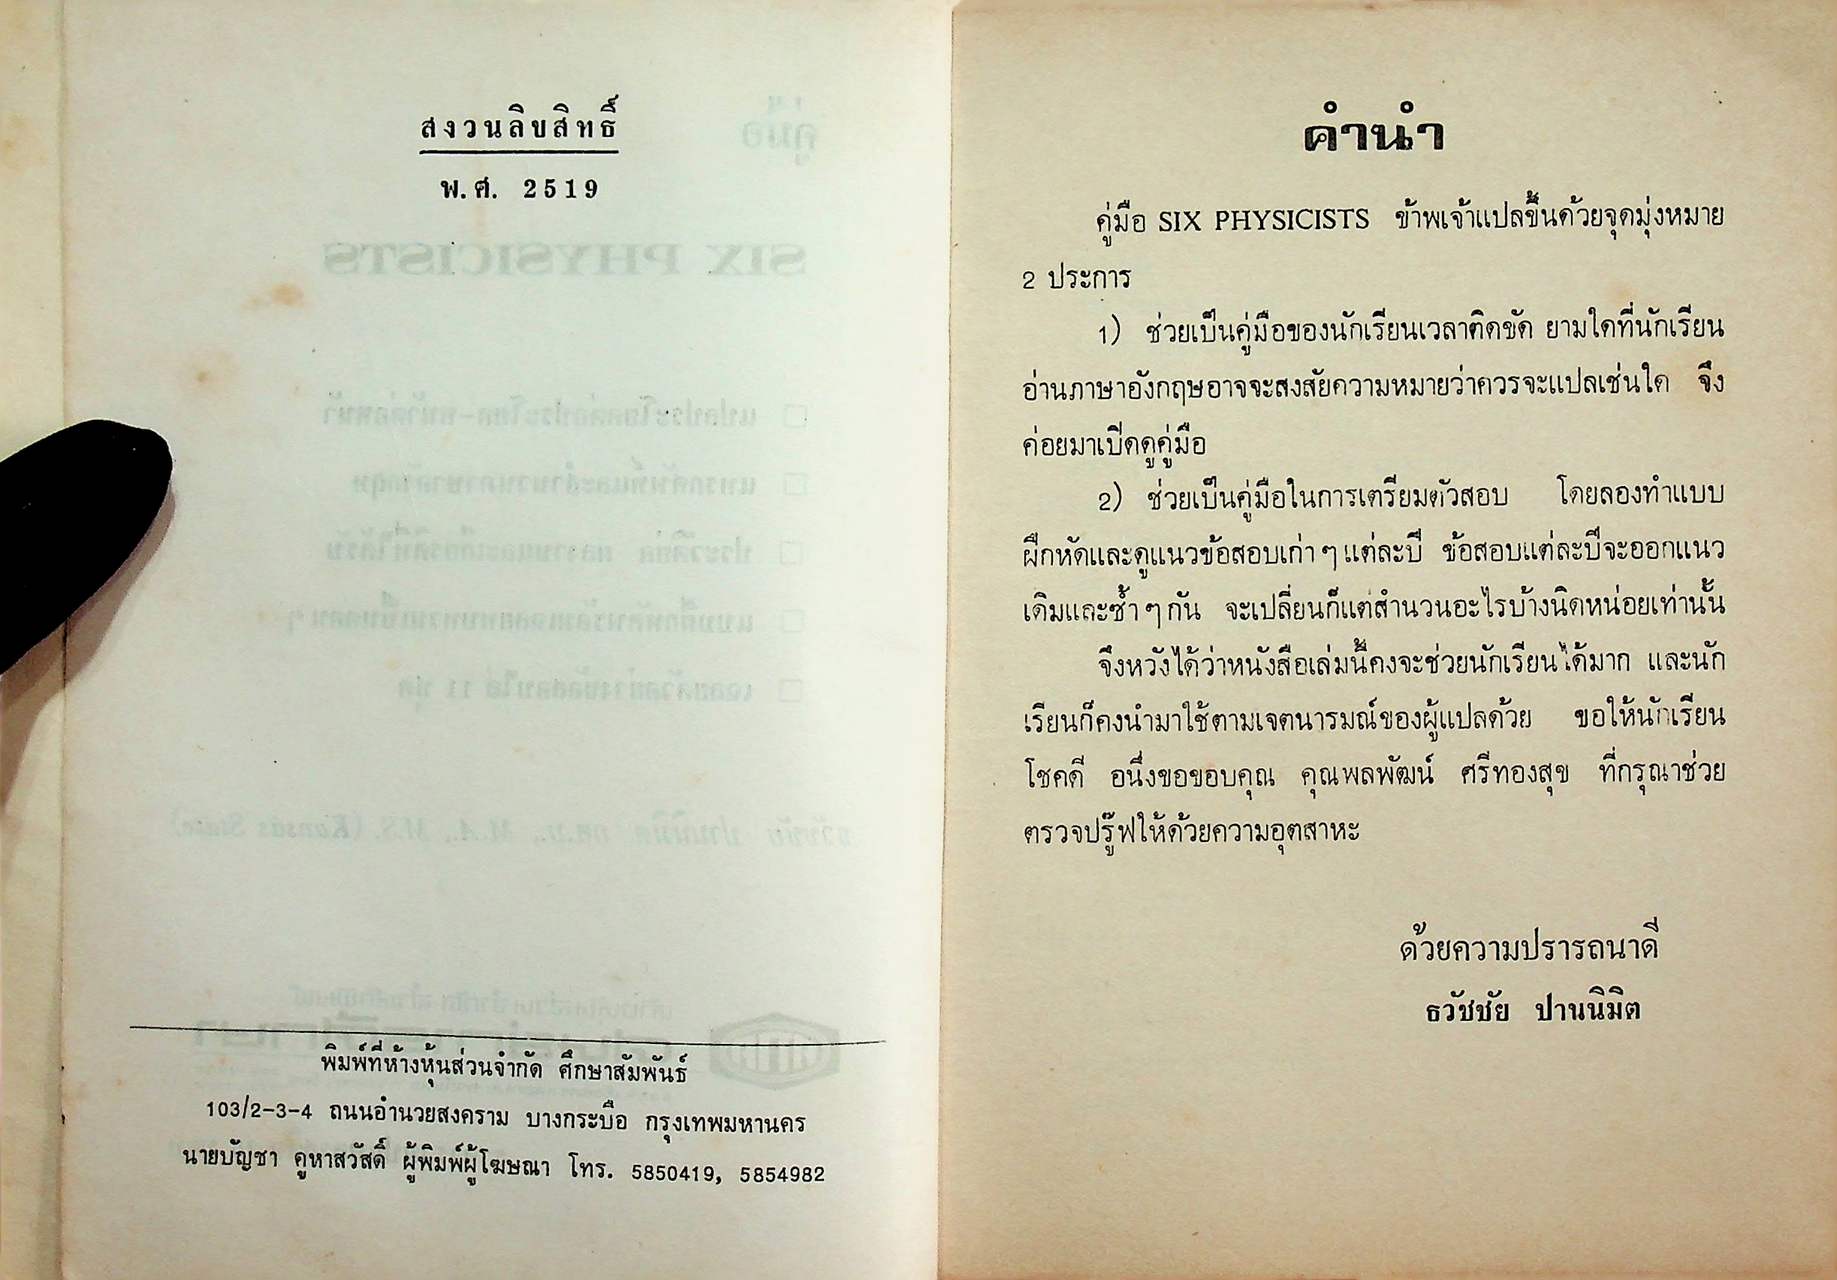 สงวนลิขสิทธิ์
พ.ศ. 2519
พิมพ์ที่ห้างหุ้นส่วนจำกัด ศึกษาสัมพันธ์
103/2-3-4 ถนนอำนวยสงคราม บางกระบือ กรุงเทพมหานคร
นายบัญชา คูหาสวัสดิ์ ผู้พิมพ์ผู้โฆษณา โทร. 5850419, 5854982
คำนำ
คู่มือ SIX PHYSICISTS ข้าพเจ้าแปลขึ้นด้วยจุดมุ่งหมาย
2 ประการ
1) ช่วยเป็นคู่มือของนักเรียนเวลาติดขัด ยามใดที่นักเรียน
อ่านภาษาอังกฤษอาจจะสงสัยความหมายว่าควรจะแปลเช่นใด จึง
ค่อยมาเปิดดูคู่มือ
2) ช่วยเป็นคู่มือในการเตรียมตัวสอบ โดยลองทำแบบ
ฝึกหัดและดูแนวข้อสอบเก่า ๆ แต่ละปี ข้อสอบแต่ละปีจะออกแนว
เดิมและซ้ำ ๆ กัน จะเปลี่ยนก็แต่สำนวนอะไรบ้างนิดหน่อยเท่านั้น
จึงหวังได้ว่าหนังสือเล่มนี้คงจะช่วยนักเรียนได้มาก และนัก
เรียนก็คงนำมาใช้ตามเจตนารมณ์ของผู้แปลด้วย ขอให้นักเรียน
โชคดี อนึ่งขอขอบคุณ คุณพลพัฒน์ ศรีทองสุข ที่กรุณาช่วย
ตรวจปรู๊ฟให้ด้วยความอุตสาหะ
ด้วยความปรารถนาดี
ธวัชชัย ปานนิมิต